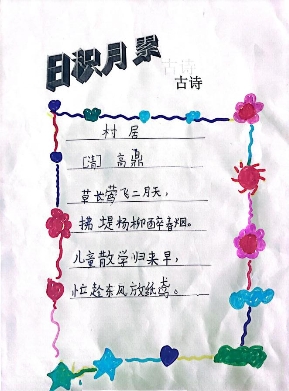 日积月累
古诗
古诗
村居
[清] 高鼎
草长莺飞二月天，
拂堤杨柳醉春烟。
儿童散学归来早，
忙趁东风放纸鸢。